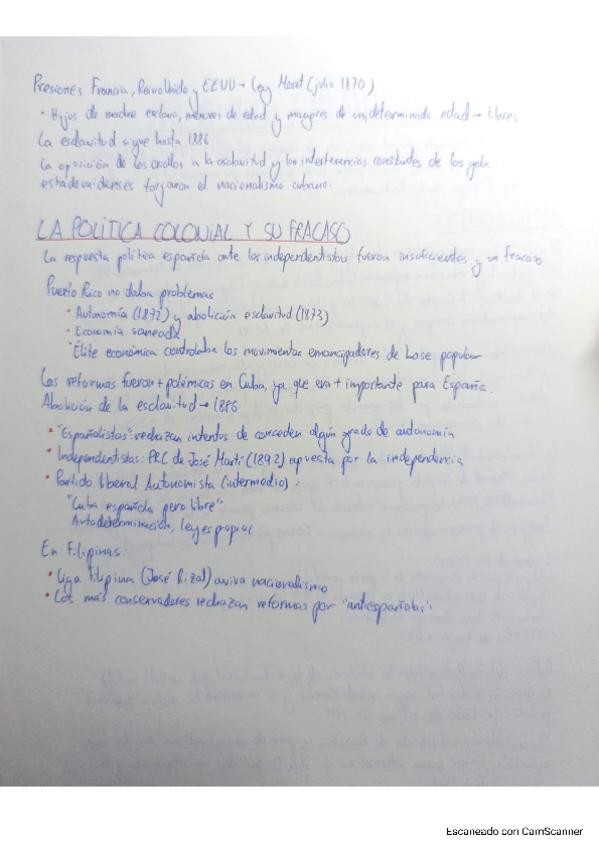 Presiones Francia, Reino Unido y EEUU → Ley Moret (julio 1870)
• Hijos de madre esclava, menores de edad y mayores de un determinada edad → libres.
La esclavitud sigue hasta 1886
La oposición de los criollos a la esclavitud y las interferencias constantes de los gob.
estadounidenses forjaron el nacionalismo cubano.
LA POLÍTICA COLONIAL Y SU FRACASO
La respuesta política española ante los independentistas fueron insuficientes y un fracaso
Puerto Rico no daba problemas
• Autonomía (1872) y abolición esclavitud (1873)
• Economía saneada
• Élite económica controlaba los movimientos emancipadores de base popular
Las reformas fueron + polémicas en Cuba, ya que era + importante para España.
Abolición de la esclavitud → 1886
• "Españolistas": rechazan intentos de conceden algún grado de autonomía
• Independentistas: PRC de José Martí (1892) apuesta por la independencia
• Partido liberal Autonomista (intermedio):
"Cuba española pero libre"
Autodeterminación, leyes propias
En Filipinas:
• Liga Filipina (José Rizal) aviva nacionalismo
• Los más conservadores rechazan reformas por "antiespañolas"
Escaneado con CamScanner